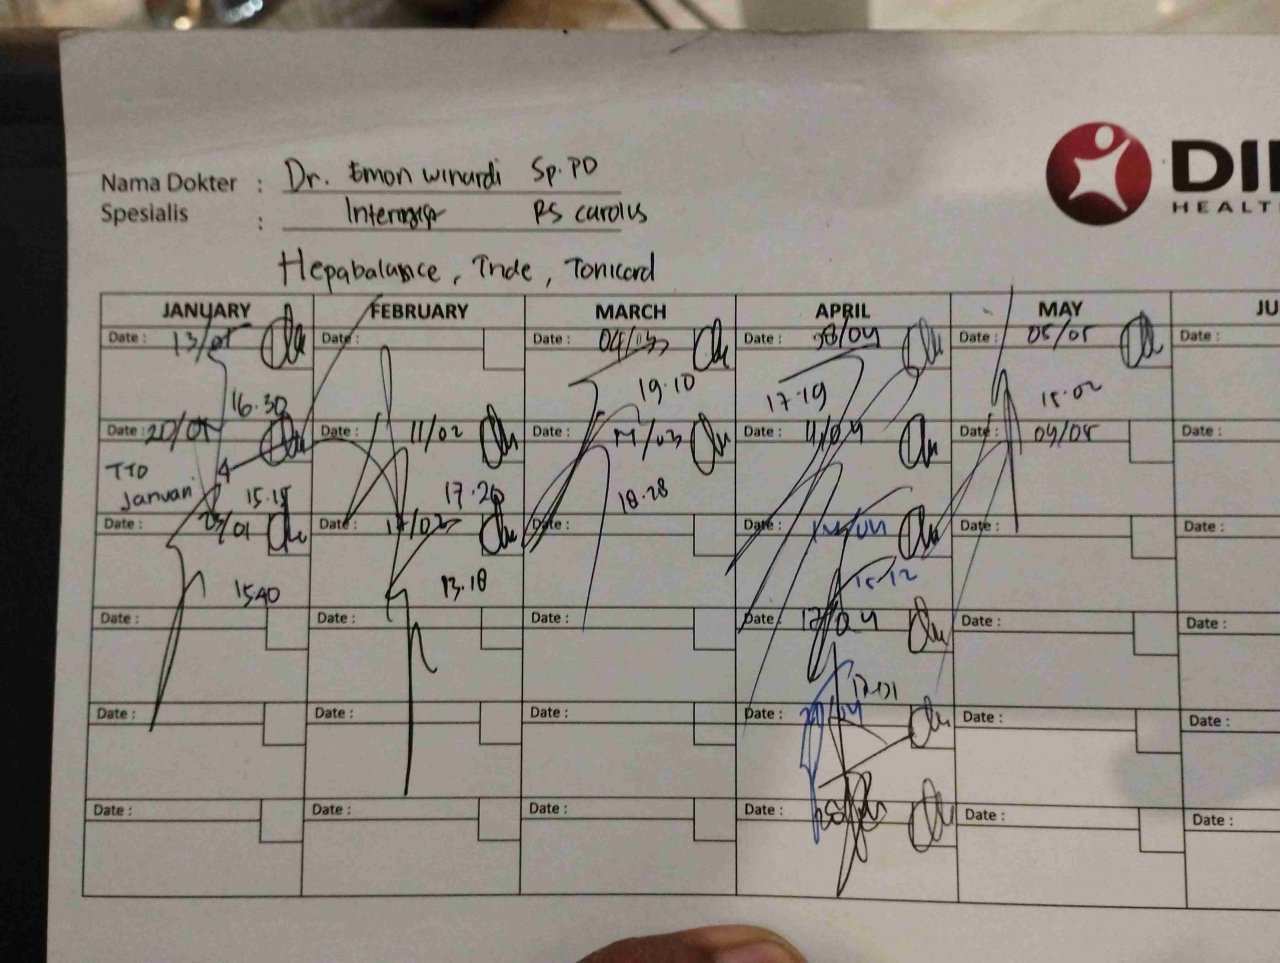 Nama Dokter : Dr. Emon Winardi Sp.PD
Spesialis : RS Carolus
Hepabalance, Tride, Tonicard
DI
HEALT
JANUARY FEBRUARY MARCH APRIL MAY JU
Date : 13/01 Date : Date : 04/03 Date : Date : 05/05 Date :
16.30 19.10 17.19 15.02
Date : 20/01 Date : 11/02 Date : 11/03 Date : 11/04 Date : 09/05 Date :
TTD
Januari 15.15 17.26 18.28
Date : Date : 17/02 Date : Date : 14/04 Date : Date :
1540 13.18 15.12
Date : Date : Date : Date : 17/04 Date : Date :
Date : Date : Date : Date : Date : Date :
Date : Date : Date : Date : Date : Date :